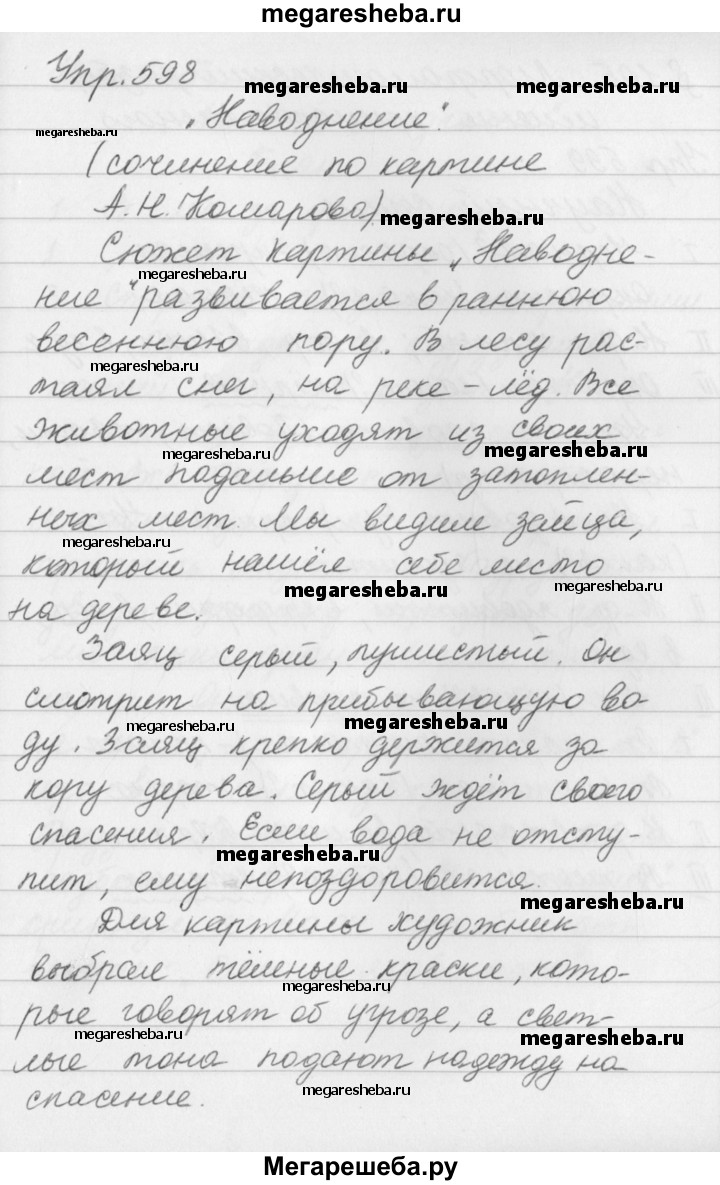 megaresheba.ru
Упр. 598
megaresheba.ru
„Наводнение".
megaresheba.ru
(сочинение по картине
А.Н. Комарова)
megaresheba.ru
Сюжет картины „Наводне-
megaresheba.ru
ние" развивается в раннюю
весеннюю пору. В лесу рас-
megaresheba.ru
таял снег, на реке – лёд. Все
животные уходят из своих
megaresheba.ru
megaresheba.ru
мест подальше от затоплен-
ных мест. Мы видим зайца,
megaresheba.ru
который нашёл себе место
megaresheba.ru
megaresheba.ru
на дереве.
Заяц серый, пушистый. Он
смотрит на прибывающую во-
megaresheba.ru
megaresheba.ru
ду. Заяц крепко держится за
кору дерева. Серый ждёт своего
спасения. Если вода не отсту-
megaresheba.ru
пит, ему непоздоровится.
megaresheba.ru
Для картины художник
выбрал тёмные краски, кото-
megaresheba.ru
рые говорят об угрозе, а свет-
megaresheba.ru
megaresheba.ru
лые тона подают надежду на
megaresheba.ru
спасение.
Мегарешеба.ру